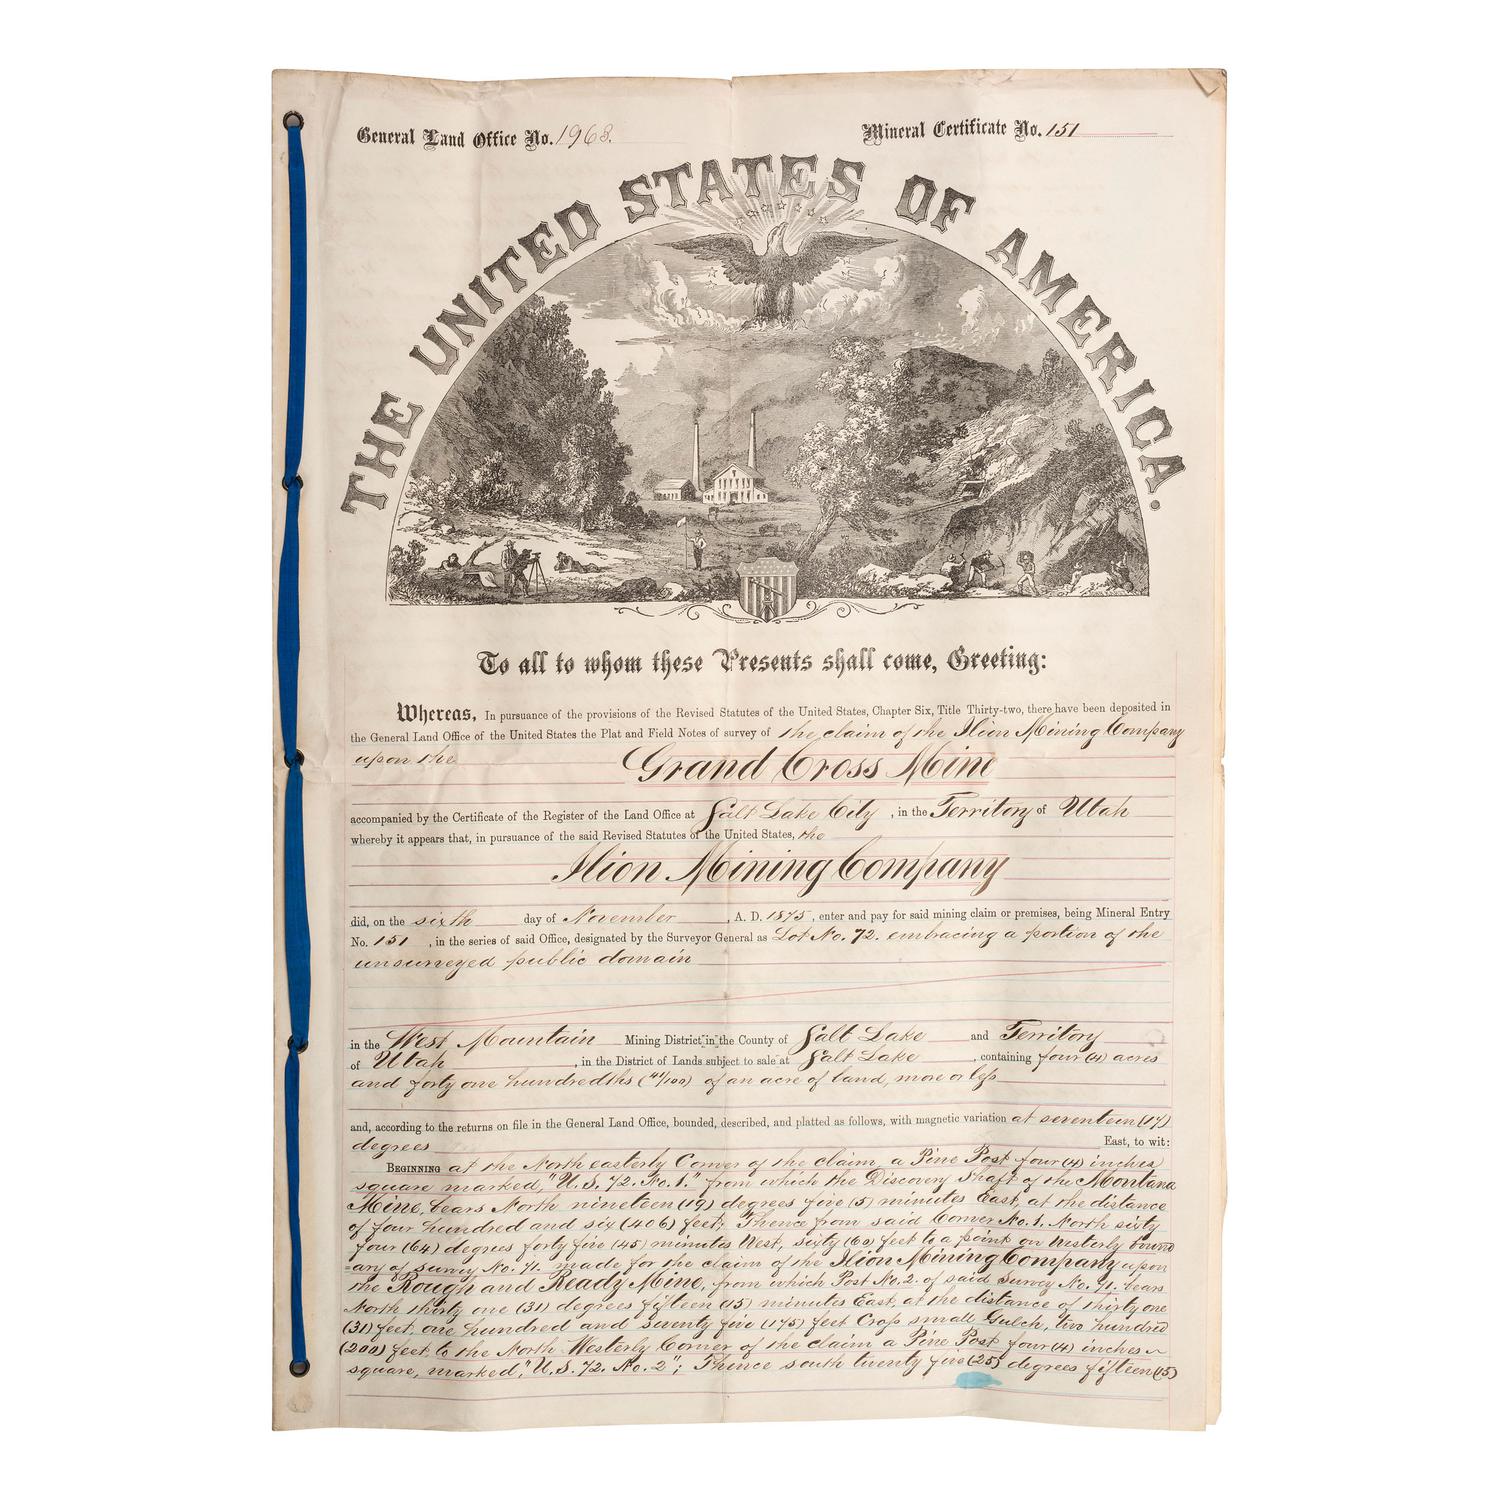 General Land Office No. 1963.
Mineral Certificate No. 151
THE UNITED STATES OF AMERICA.
To all to whom these Presents shall come, Greeting:
Whereas, In pursuance of the provisions of the Revised Statutes of the United States, Chapter Six, Title Thirty-two, there have been deposited in
the General Land Office of the United States the Plat and Field Notes of survey of the claim of the Ilion Mining Company
upon the
Grand Cross Mine
accompanied by the Certificate of the Register of the Land Office at Salt Lake City, in the Territory of Utah
whereby it appears that, in pursuance of the said Revised Statutes of the United States, the
Ilion Mining Company
did, on the sixth day of November, A. D. 1875, enter and pay for said mining claim or premises, being Mineral Entry
No. 151, in the series of said Office, designated by the Surveyor General as Lot No. 72. embracing a portion of the
unsurveyed public domain
in the West Mountain Mining District in the County of Salt Lake and Territory
of Utah, in the District of Lands subject to sale at Salt Lake, containing four (4) acres
and forty one hundredths (41/100) of an acre of land, more or less
and, according to the returns on file in the General Land Office, bounded, described, and platted as follows, with magnetic variation at seventeen (17)
degrees East, to wit:
BEGINNING at the North easterly Corner of the claim a Pine Post four (4) inches
square marked, "U. S. 72. No. 1." from which the Discovery Shaft of the Montana
Mine, bears North nineteen (19) degrees five (5) minutes East, at the distance
of four hundred and six (406) feet; Thence from said Corner No. 1. North sixty
four (64) degrees forty five (45) minutes West, sixty (60) feet to a point on Westerly bound
=ary of survey No. 71. made for the claim of the Ilion Mining Company upon
the Rough and Ready Mine, from which Post No. 2. of said Survey No. 71. bears
North thirty one (31) degrees fifteen (15) minutes East, at the distance of thirty one
(31) feet, one hundred and seventy five (175) feet Cross small Gulch, two hundred
(200) feet to the North Westerly Corner of the claim a Pine Post four (4) inches
square, marked, "U. S. 72. No. 2"; Thence south twenty five (25) degrees fifteen (15)